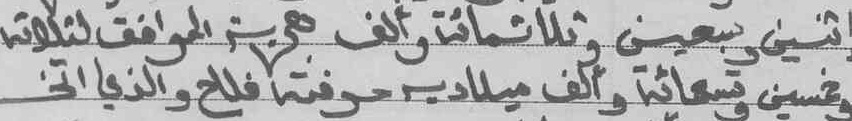 اثنين وسبعين وثلاثمائة وألف هجرية الموافق لثلاثة
وخمسين وتسعمائة وألف ميلادية حرفته فلاح والذي اتخذ